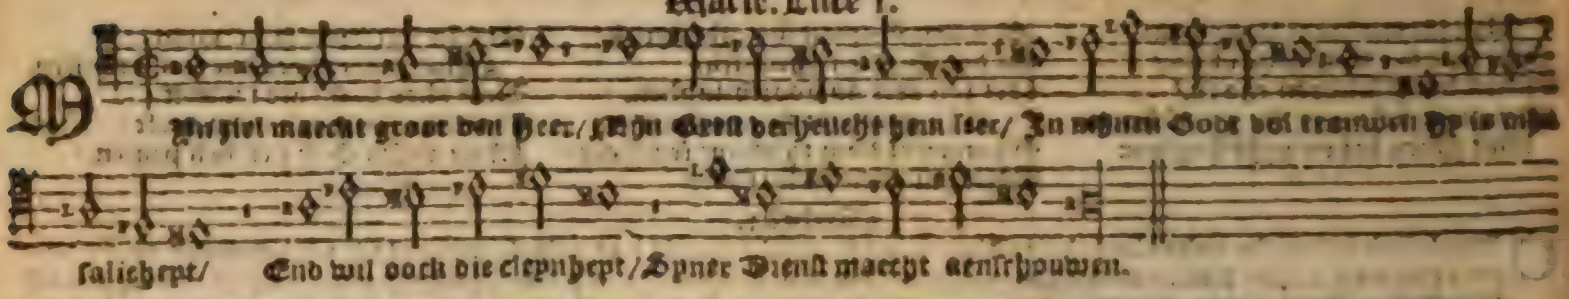 Luce 1.
Mijn ziel maeckt groot den Heer/ Mijn Geest verheucht hem seer/ In mijnen Godt vol trouwen Hy is mijn
salicheyt/ End wil oock die cleynheyt/ Syner Dienst maecht aenschouwen.